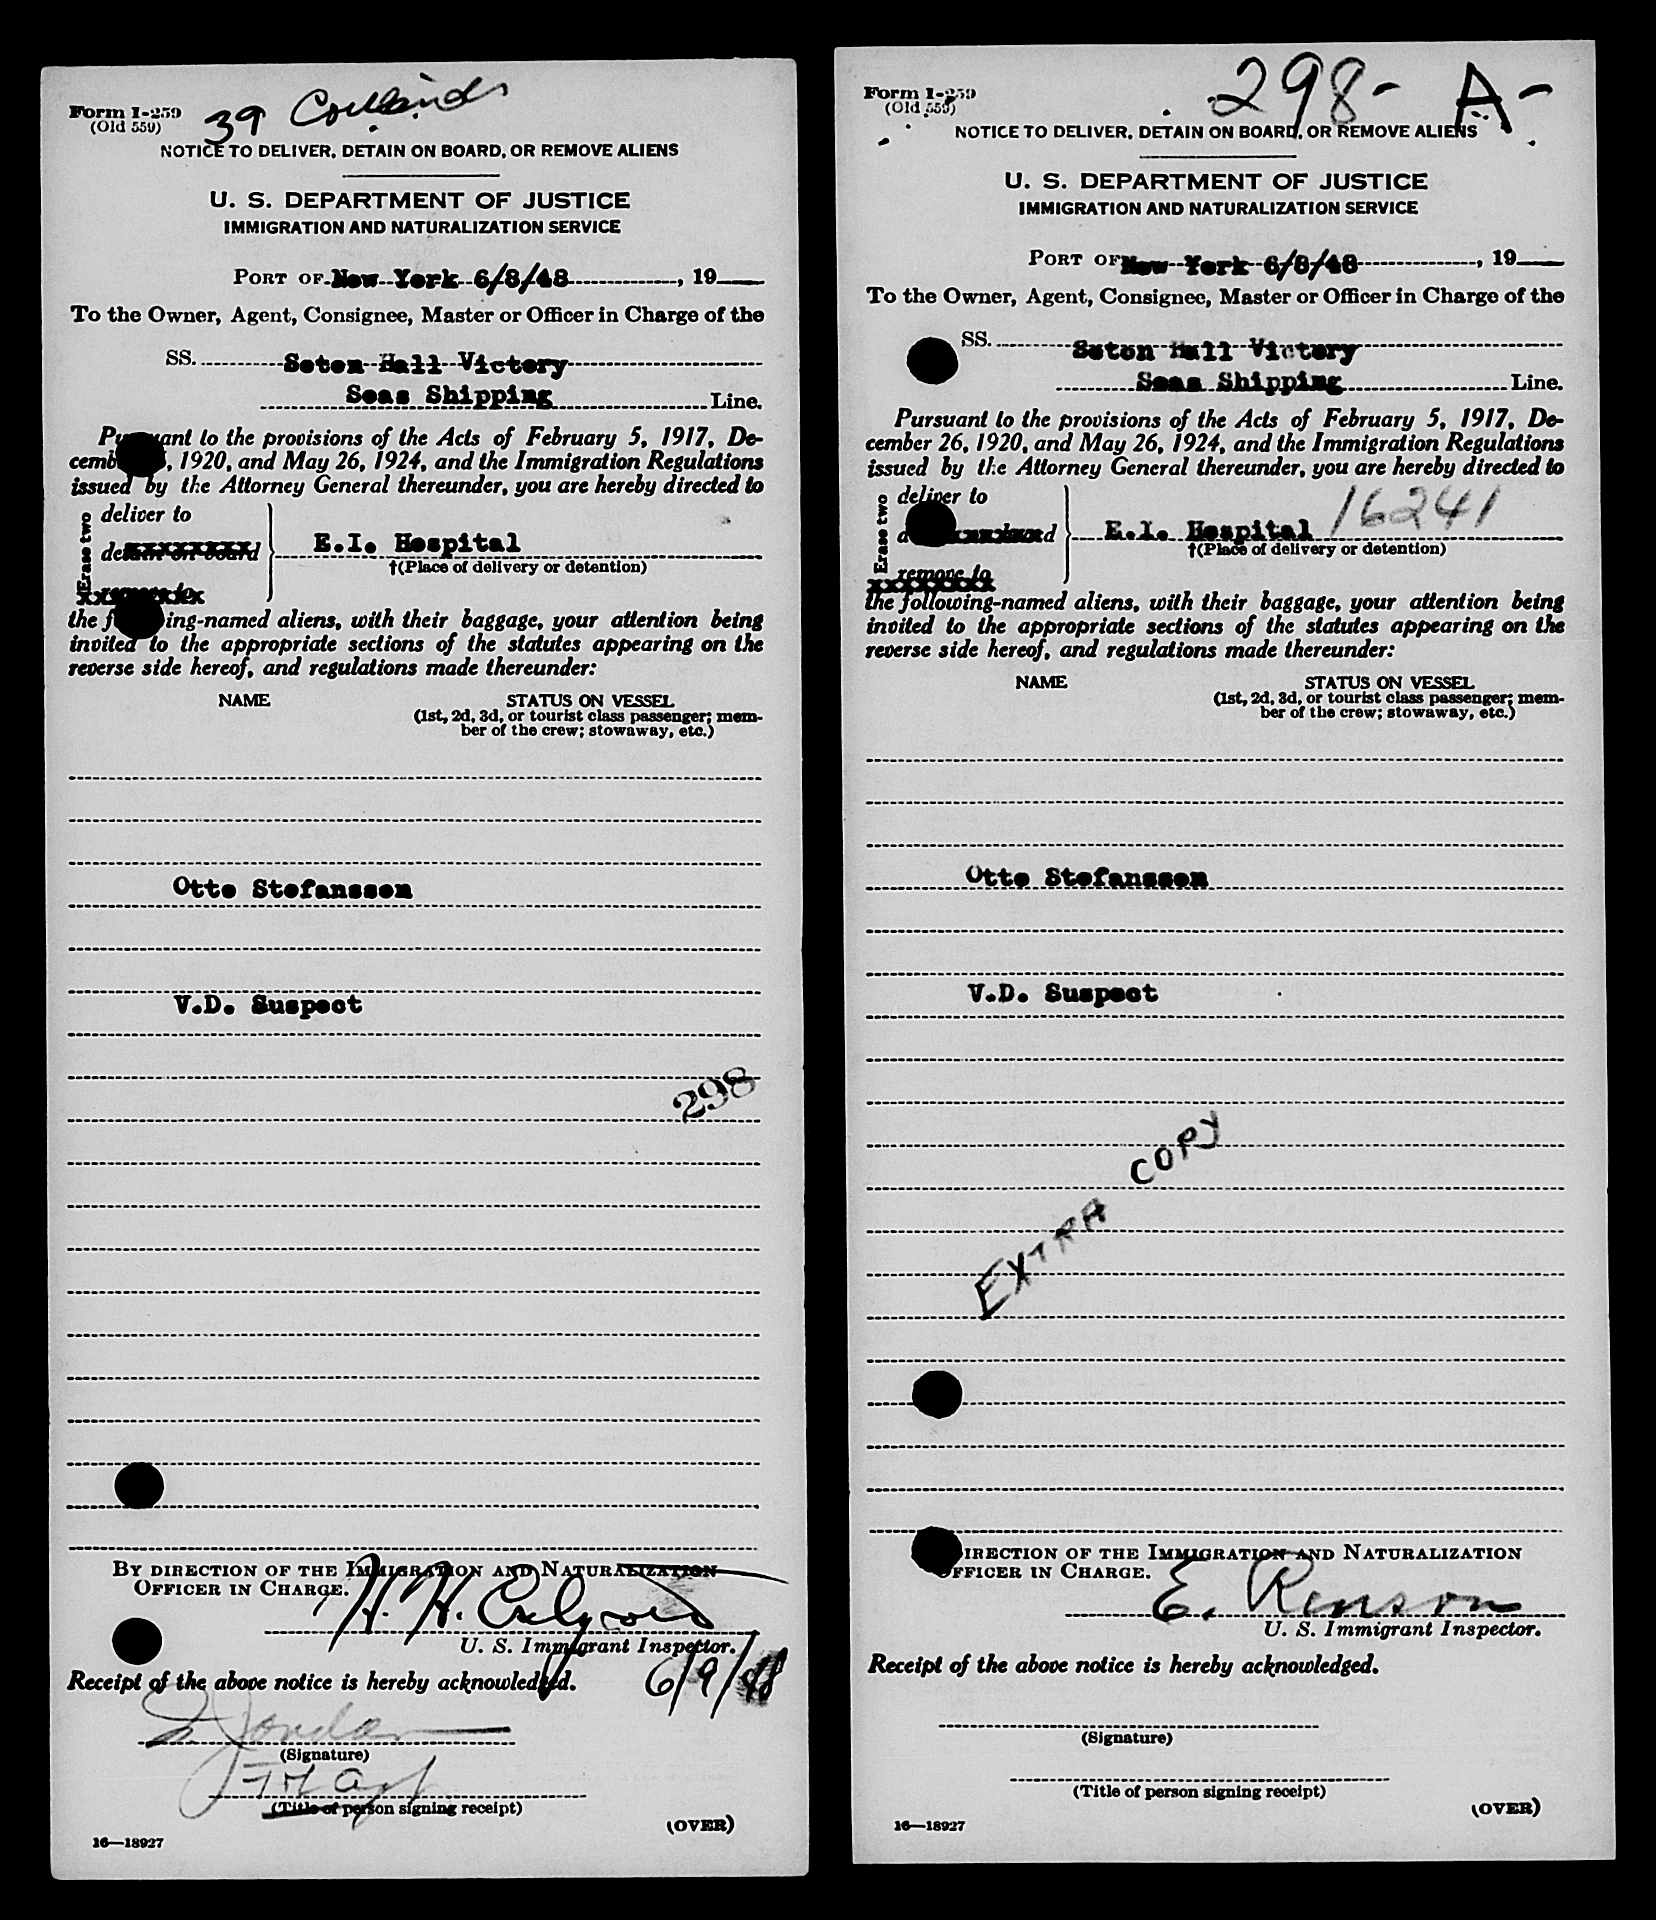 Form I-259
(Old 559)
39
NOTICE TO DELIVER, DETAIN ON BOARD, OR REMOVE ALIENS
U. S. DEPARTMENT OF JUSTICE
IMMIGRATION AND NATURALIZATION SERVICE
PORT OF New York 6/8/48, 19
To the Owner, Agent, Consignee, Master or Officer in Charge of the
SS. Seton Hall Victory
Seas Shipping Line.
Pursuant to the provisions of the Acts of February 5, 1917, De-
cemb , 1920, and May 26, 1924, and the Immigration Regulations
issued by the Attorney General thereunder, you are hereby directed to
Erase two
deliver to
detain on board
remove to
E.I. Hospital
†(Place of delivery or detention)
the following-named aliens, with their baggage, your attention being
invited to the appropriate sections of the statutes appearing on the
reverse side hereof, and regulations made thereunder:
NAME STATUS ON VESSEL
(1st, 2d, 3d, or tourist class passenger; mem-
ber of the crew; stowaway, etc.)
Otto Stefansson
V.D. Suspect
298
BY DIRECTION OF THE IMMIGRATION AND NATURALIZATION
OFFICER IN CHARGE.
H. H.
U. S. Immigrant Inspector.
Receipt of the above notice is hereby acknowledged. 6/9/48
Jordan
(Signature)
(Title of person signing receipt)
(OVER)
16—18927
Form I-259
(Old 559)
298- A-
NOTICE TO DELIVER, DETAIN ON BOARD, OR REMOVE ALIENS
U. S. DEPARTMENT OF JUSTICE
IMMIGRATION AND NATURALIZATION SERVICE
PORT OF New York 6/8/48, 19
To the Owner, Agent, Consignee, Master or Officer in Charge of the
SS. Seton Hall Victory
Seas Shipping Line.
Pursuant to the provisions of the Acts of February 5, 1917, De-
cember 26, 1920, and May 26, 1924, and the Immigration Regulations
issued by the Attorney General thereunder, you are hereby directed to
Erase two
deliver to
remove to
E.I. Hospital 16241
†(Place of delivery or detention)
the following-named aliens, with their baggage, your attention being
invited to the appropriate sections of the statutes appearing on the
reverse side hereof, and regulations made thereunder:
NAME STATUS ON VESSEL
(1st, 2d, 3d, or tourist class passenger; mem-
ber of the crew; stowaway, etc.)
Otto Stefansson
V.D. Suspect
EXTRA COPY
DIRECTION OF THE IMMIGRATION AND NATURALIZATION
OFFICER IN CHARGE.
E. Renson
U. S. Immigrant Inspector.
Receipt of the above notice is hereby acknowledged.
(Signature)
(Title of person signing receipt)
(OVER)
16—18927